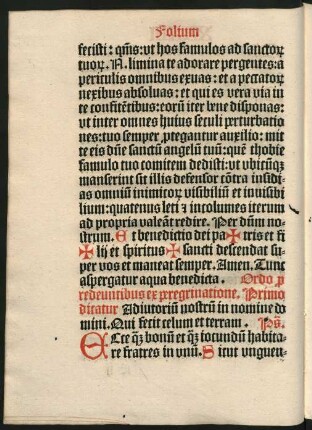 Folium
fecisti: qm̃s: vt hos famulos ad sanctoꝝ
tuoꝝ. N. limina te adorare pergentes: a
periculis omnibus exuas: et a peccatoꝝ
nexibus absoluas: et qui es vera via in
te confitẽtibus: eorũ iter bene disponas:
vt inter omnes huius seculi ꝑturbatio
nes: tuo semper ꝓtegantur auxilio: mit
te eis dñe sanctũ angelũ tuũ: quẽ thobie
famulo tuo comitem dedisti: vt vbicũqꝫ
manserint sit illis defensor cõtra insidi-
as omniũ inimicoꝝ visibiliũ et inuisibi
lium: quatenus leti ⁊ incolumes iterum
ad propria valeãt redire. Per dñm no-
strum. Et benedictio dei pa✠tris et fi
✠lij et spiritus ✠ sancti descendat su
per vos et maneat semper. Amen. Tunc
aspergatur aqua benedicta. Ordo ꝓ
redeuntibus ex peregrinatione. Primo
dicatur Adiutoriũ nostrũ in nomine do
mini. Qui fecit celum et terram. Ps̃.
Ecce qꝫ bonũ et qꝫ iocundũ habita-
re fratres in vnũ. Sicut vnguen-